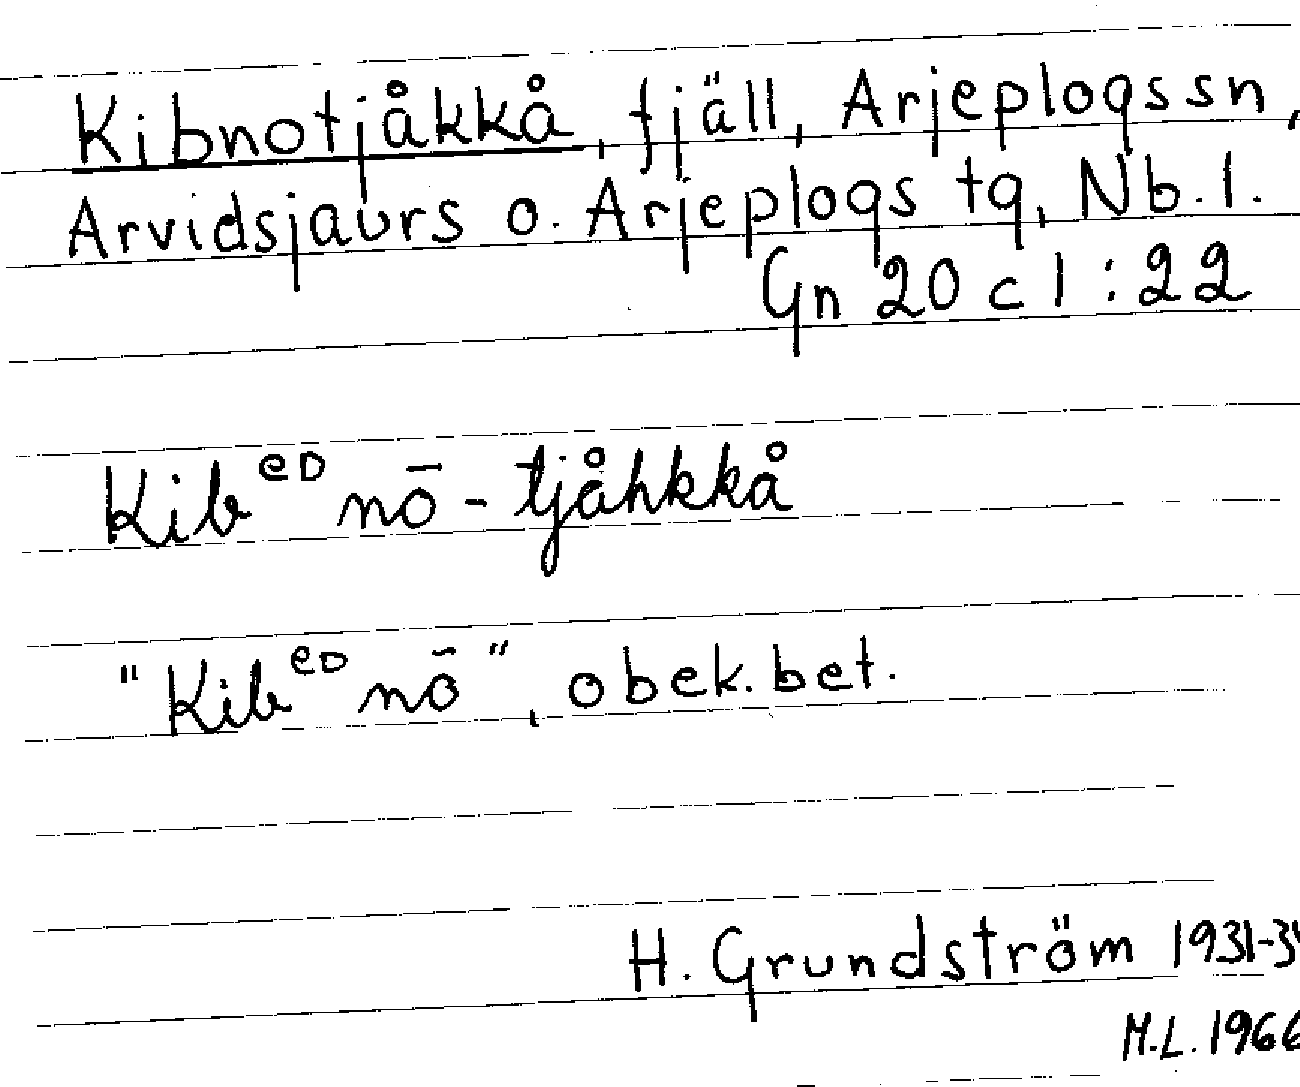 Kibnotjåkkå, fjäll, Arjeplogs sn,
Arvidsjaurs o. Arjeplogs tg, Nb. l.
Gn 20 c 1 : 22
Kibᵊᴰnō - tjåhkkå
"Kibᵊᴰnō", obek. bet.
H. Grundström 1931-3
M.L. 1966